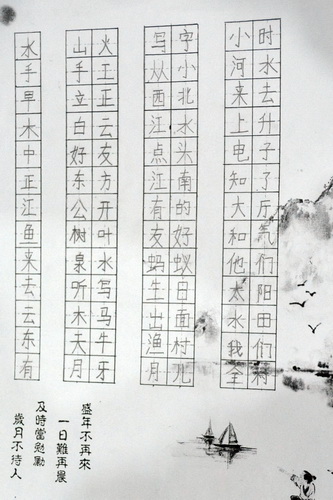 时水去升子了厅气们阳田们村
小河来上电知大和他太水我全
字小北水头南的好蚁日面村儿
写从西江点江有友蚂生出渔月
火王正云友方开叶水写马牛牙
山手立白好东公树泉听木天月
水手早木中正江鱼来去云东有
盛年不再來
一日難再晨
及時當勉勵
歲月不待人